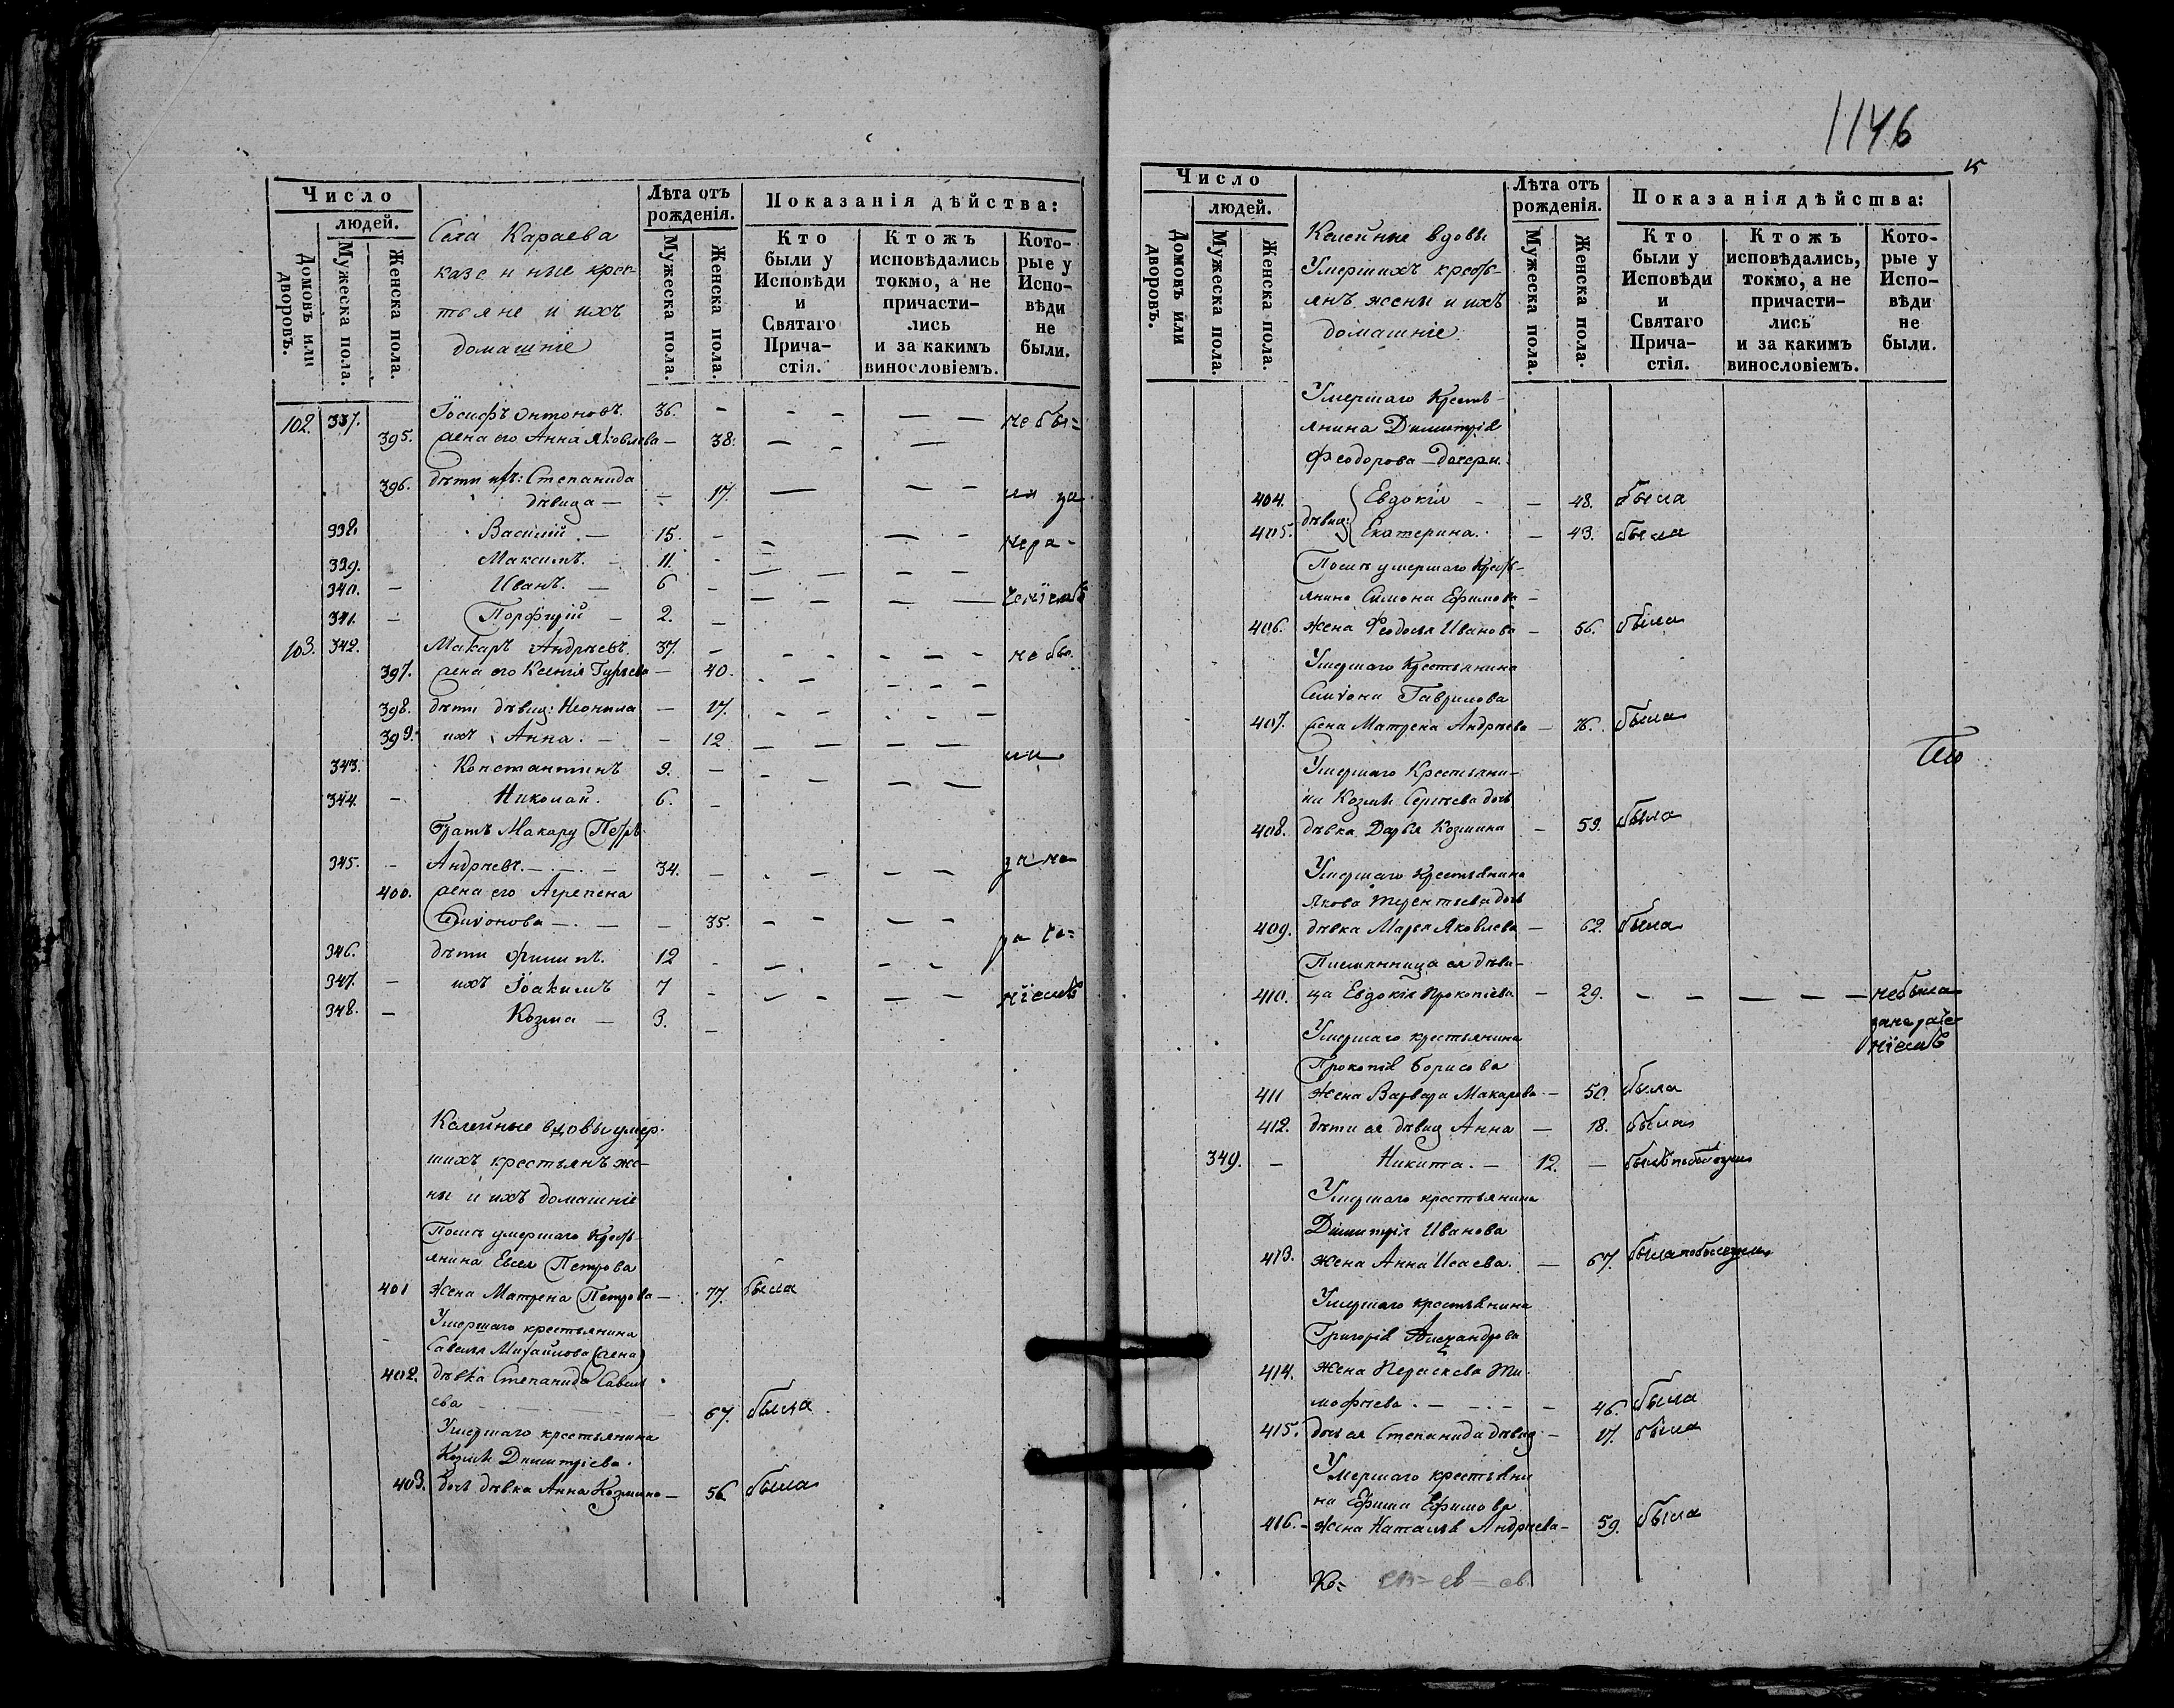 Число
людей.
Домовъ или дворовъ.
Мужеска пола.
Женска пола.
Села Караева
казенные крес-
тьяне и ихъ
домашніе
Лѣта отъ
рожденія.
Мужеска пола.
Женска пола.
Показанія дѣйства:
Кто
были у
Исповѣди
и
Святаго
Прича-
стія.
Ктожъ
исповѣдались
токмо, а не
причасти-
лись
и за какимъ
винословіемъ.
Кото-
рые у
Испо-
вѣди
не
были.
102. 337. Іосифъ Антоновъ. 36. - - - - — — не бы=
395. жена его Анна Яковлева — 38. — - —
396. дѣти ихъ: Степанида
дѣвица — - 17. — - - ли за
338. Василій. — 15. - - — - нера-
339. Максимъ. - 11. - — — - -
340. — Иванъ. — 6 - — — — — ченіемъ
341. — Порфирій — 2. —
103. 342. Макаръ Андреевъ. 37. — - - - - - не бы.
397. жена его Ксенія Гурьева — 40. - - - - -
398. дѣти дѣвиц: Неонила — 17. - - - - -
399. ихъ Анна. — — 12. — — — — — ли
343. Константинъ 9. — - - - -
344. — Николай. 6. -
братъ Макару Петръ
345. - Андреевъ. — — 34. — - - - - за не
400. жена его Агрепена
Симіонова —. — — 35. - - - - ра че=
346. дѣти Филипъ. 12 - — - - -
347. — ихъ Іоакимъ 7 - — - — — ніемъ
348. — Козма — 3. —
Келейные вдовы умер-
шихъ крестьянъ же-
ны и ихъ домашніе
Послѣ умершаго крест-
янина Евсея Петрова
401 жена Матрена Петрова — 77. была
Умершаго крестьянина
Савелья Михайлова (жена)
402. дѣвка Степанида Савель
ева 67. была
Умершаго крестьянина
Козмы Димитріева.
403. дочь дѣвка Анна Козмина — 56. была
1146
Число
людей.
Домовъ или дворовъ.
Мужеска пола.
Женска пола.
Келейные вдовы
Умершихъ кресть-
янъ жены и ихъ
домашніе.
Лѣта отъ
рожденія.
Мужеска пола.
Женска пола.
Показанія дѣйства:
Кто
были у
Исповѣди
и
Святаго
Прича-
стія.
Ктожъ
исповѣдались,
токмо, а не
причасти-
лись
и за какимъ
винословіемъ.
Кото-
рые у
Испо-
вѣди
не
были.
Умершаго Кресть-
янина Димитрія
Феодорова — дочери.
404. Евдокія - — 48. была
дѣвиц:
405. Екатерина. — 43. была
Послѣ умершаго крест-
янина Симона Ефимова —
406. жена Феодосья Иванова — 56. была
Умершаго Крестьянина
Симіона Гаврилова
407. жена Матрена Андреева — 76. была
Умершаго Крестьяни-
на Козмы Сергѣева дочь
408. дѣвка Дарья Козмина — 59. была
Умершаго Крестьянина
Якова Терентьева дочь
409. дѣвка Марья Яковлева — 62. была
Племянница ея дѣви-
410. ца Евдокія Прокопіева — 29. - - — — — небыла
занераче
ніемъ
Умершаго крестьянина
Прокопія Борисова
411 жена Варвара Макарова — 50. была
412. дѣти ея дѣвиц Анна — 18. была
349. — Никита. — 12. —
Умершаго крестьянина
Димитрія Иванова
413. жена Анна Исаева. — 67.
Умершаго крестьянина
Григорія Александрова
414. жена Пераскева Ти-
мофѣева. — — — 46. была
415. дочь ея Степанида дѣвиц — 17. была
Умершаго крестьяни
на Ефима Ефимова
416. — жена Наталья Андреева — 59. была